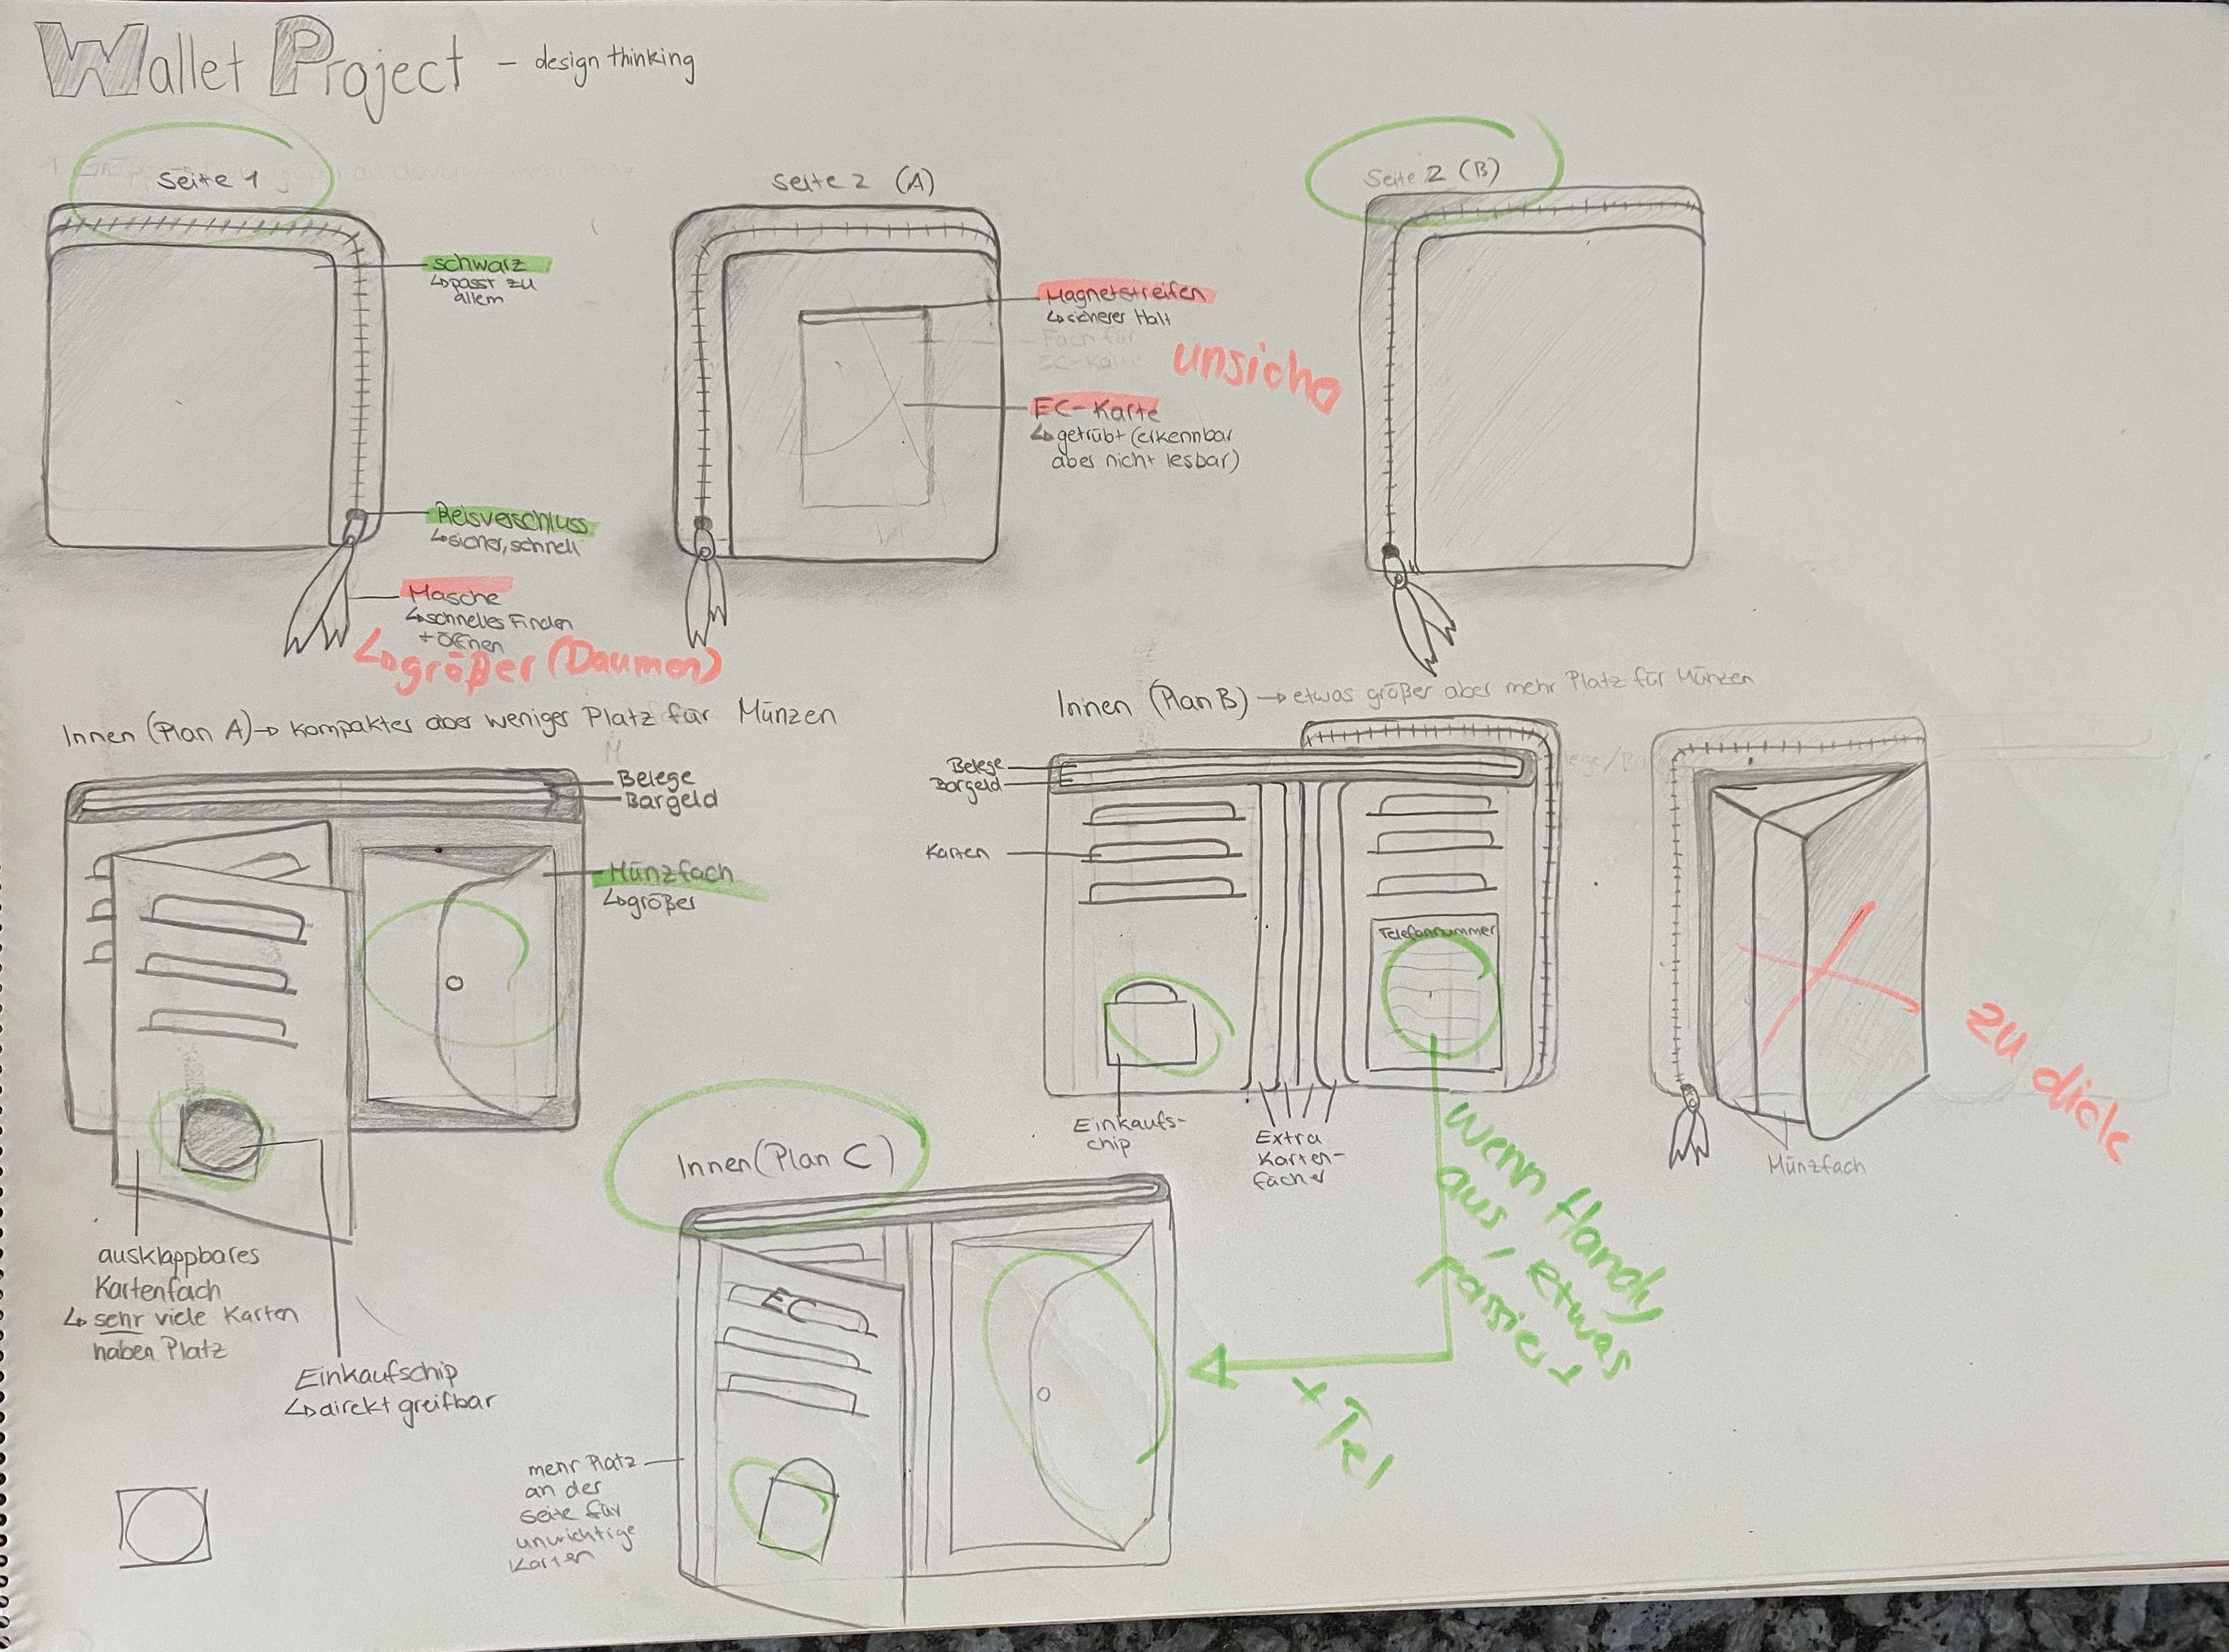 Wallet Project - design thinking
Seite 1
schwarz
↳ passt zu
allem
Reisverschluss
↳ sicher, schnell
Masche
↳ schnelles Finden
+ Öffnen
↳ größer (Daumen)
Seite 2 (A)
Magnetstreifen
↳ sicherer Halt
Fach für
EC-Karte
unsicher
EC-Karte
↳ getrübt (erkennbar
aber nicht lesbar)
Seite 2 (B)
Innen (Plan A) → kompakter aber weniger Platz für Münzen
Belege
Bargeld
Münzfach
↳ größer
ausklappbares
Kartenfach
↳ sehr viele Karten
haben Platz
Einkaufschip
↳ direkt greifbar
Innen (Plan B) → etwas größer aber mehr Platz für Münzen
Belege
Bargeld
Karten
Telefonnummer
Einkaufs-
chip
Extra
Karten-
fächer
Münzfach
zu dick
wenn Handy
aus, etwas
passiert
+ Tel
Innen (Plan C)
EC
mehr Platz
an der
Seite für
unwichtige
Karten